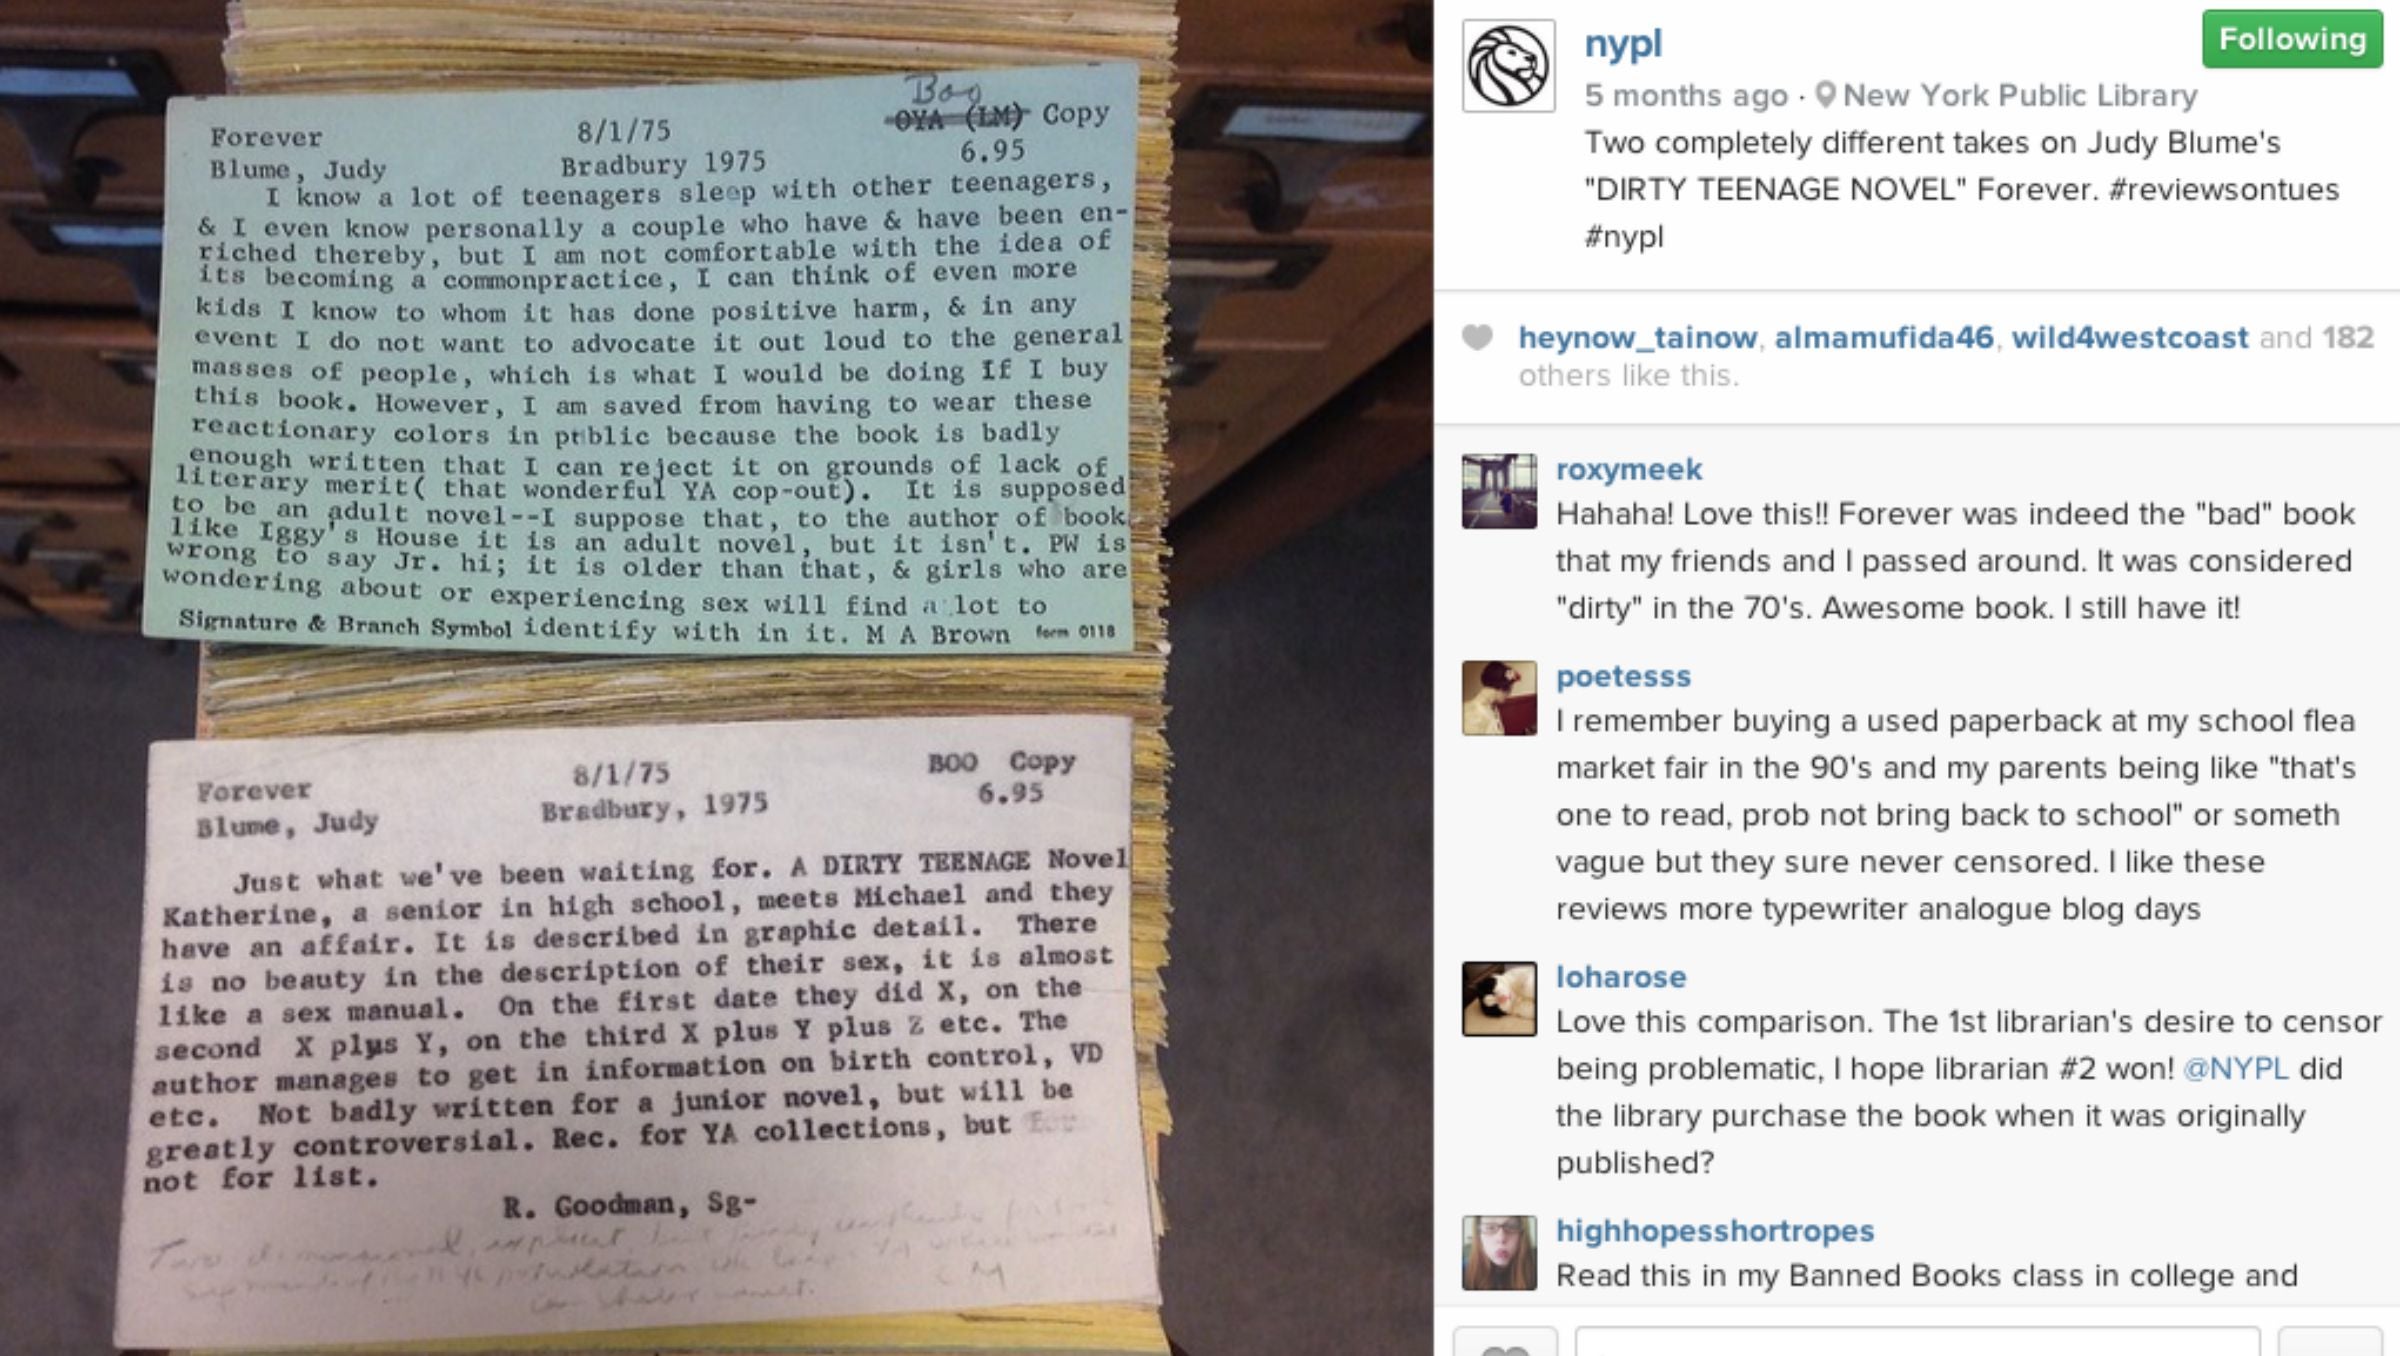 Boo
OYA (LM) Copy
Forever 8/1/75
6.95
Blume, Judy Bradbury 1975
I know a lot of teenagers sleep with other teenagers,
& I even know personally a couple who have & have been en-
riched thereby, but I am not comfortable with the idea of
its becoming a commonpractice, I can think of even more
kids I know to whom it has done positive harm, & in any
event I do not want to advocate it out loud to the general
masses of people, which is what I would be doing If I buy
this book. However, I am saved from having to wear these
reactionary colors in public because the book is badly
enough written that I can reject it on grounds of lack of
literary merit( that wonderful YA cop-out). It is supposed
to be an adult novel--I suppose that, to the author of book
like Iggy's House it is an adult novel, but it isn't. PW is
wrong to say Jr. hi; it is older than that, & girls who are
wondering about or experiencing sex will find a lot to
Signature & Branch Symbol identify with in it. M A Brown form 0118
Forever 8/1/75 BOO Copy
Blume, Judy Bradbury, 1975 6.95
Just what we've been waiting for. A DIRTY TEENAGE Novel
Katherine, a senior in high school, meets Michael and they
have an affair. It is described in graphic detail. There
is no beauty in the description of their sex, it is almost
like a sex manual. On the first date they did X, on the
second X plus Y, on the third X plus Y plus Z etc. The
author manages to get in information on birth control, VD
etc. Not badly written for a junior novel, but will be
greatly controversial. Rec. for YA collections, but for
not for list.
R. Goodman, Sg-
Two dimensional, explicit, but
nypl
Following
5 months ago · New York Public Library
Two completely different takes on Judy Blume's
"DIRTY TEENAGE NOVEL" Forever. #reviewsontues
#nypl
heynow_tainow, almamufida46, wild4westcoast and 182
others like this.
roxymeek
Hahaha! Love this!! Forever was indeed the "bad" book
that my friends and I passed around. It was considered
"dirty" in the 70's. Awesome book. I still have it!
poetesss
I remember buying a used paperback at my school flea
market fair in the 90's and my parents being like "that's
one to read, prob not bring back to school" or someth
vague but they sure never censored. I like these
reviews more typewriter analogue blog days
loharose
Love this comparison. The 1st librarian's desire to censor
being problematic, I hope librarian #2 won! @NYPL did
the library purchase the book when it was originally
published?
highhopesshortropes
Read this in my Banned Books class in college and